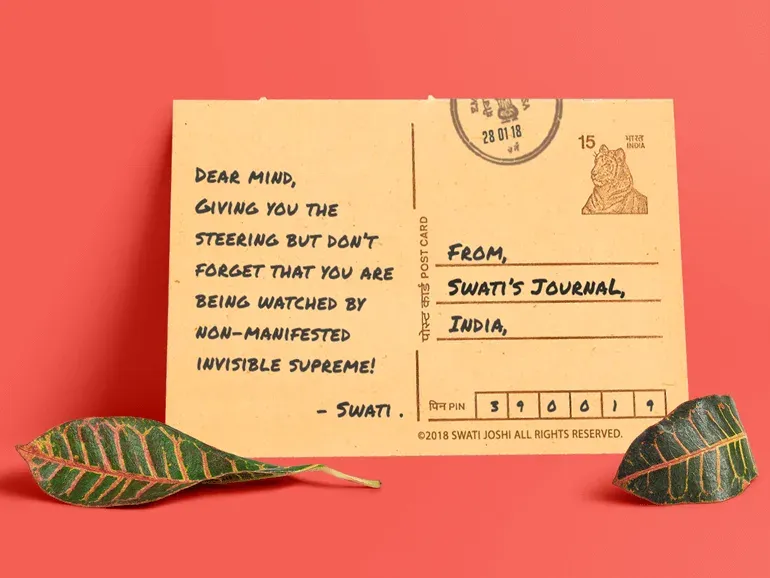 Dear mind,
Giving you the
steering but don't
forget that you are
being watched by
non-manifested
invisible supreme!
- Swati.
पोस्ट कार्ड POST CARD
28 01 18
15
भारत
INDIA
From,
Swati's Journal,
India,
पिन PIN 3 9 0 0 1 9
©2018 SWATI JOSHI ALL RIGHTS RESERVED.